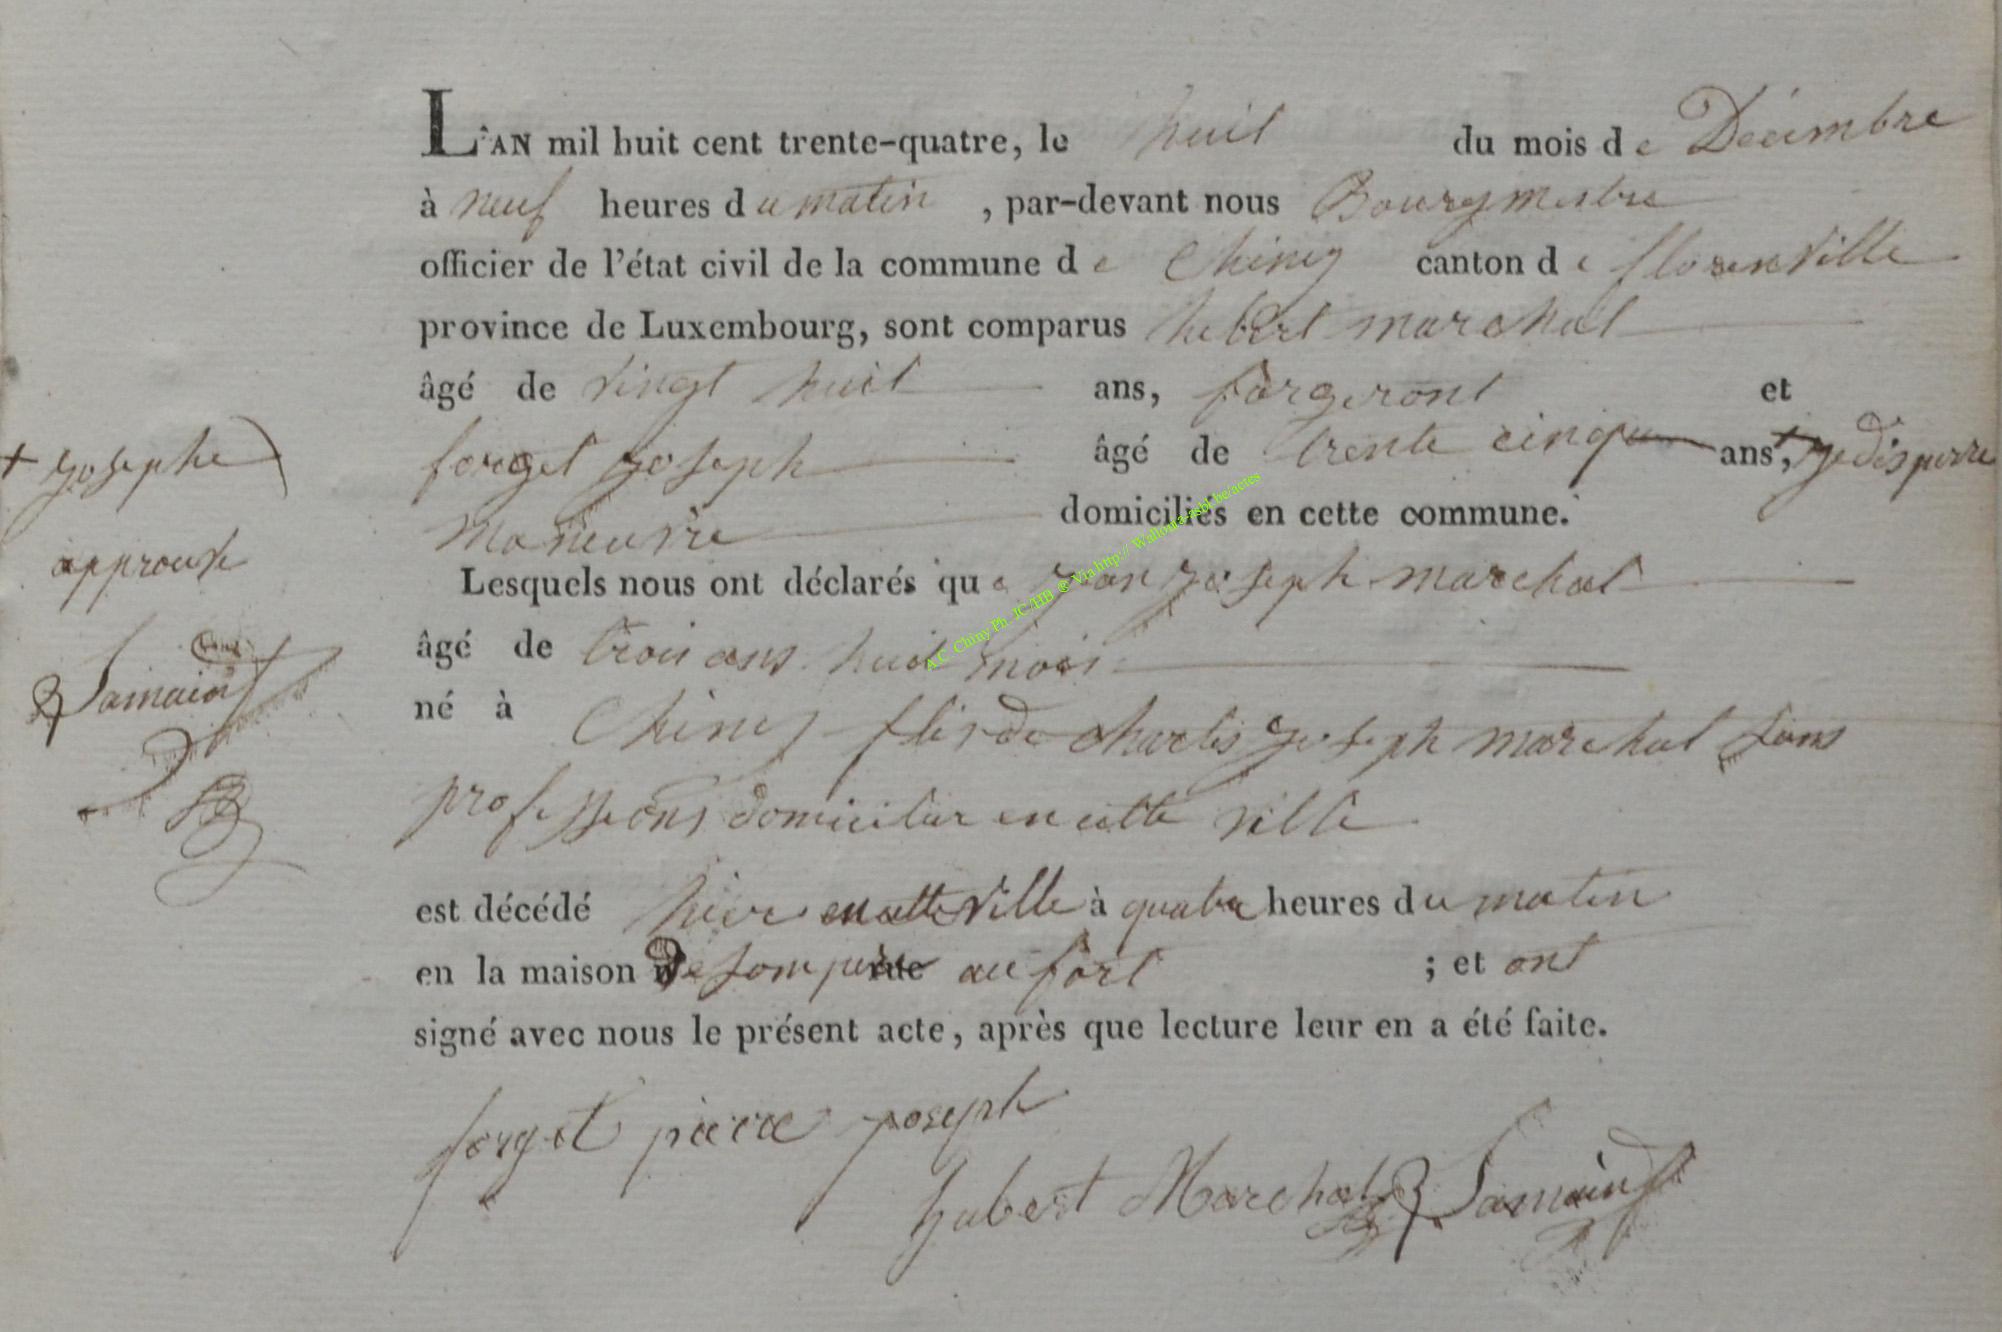 L'AN mil huit cent trente-quatre, le huit du mois de Décimbre
à neuf heures du matin, par-devant nous Bourgmestre
officier de l'état civil de la commune de Chiney canton de florenville
province de Luxembourg, sont comparus hubert marchal
âgé de vingt huit ans, forgeront et
forget joseph âgé de trente cinq ans,
maneuvre domiciliés en cette commune.
+ josephe
approuvé
Samain
Lesquels nous ont déclarés que jean joseph marchal
âgé de trois ans huit mois
né à Chiney fils de charles joseph marchal sans
professions domicilier en cette ville
est décédé hier en cette ville à quatre heures du matin
en la maison de son père au fort ; et ont
signé avec nous le présent acte, après que lecture leur en a été faite.
forget pierre joseph
hubert Marchal Samain
A.C Chiny Ph. JC/HB ® Via http:// Wallonia-asbl.be/actes